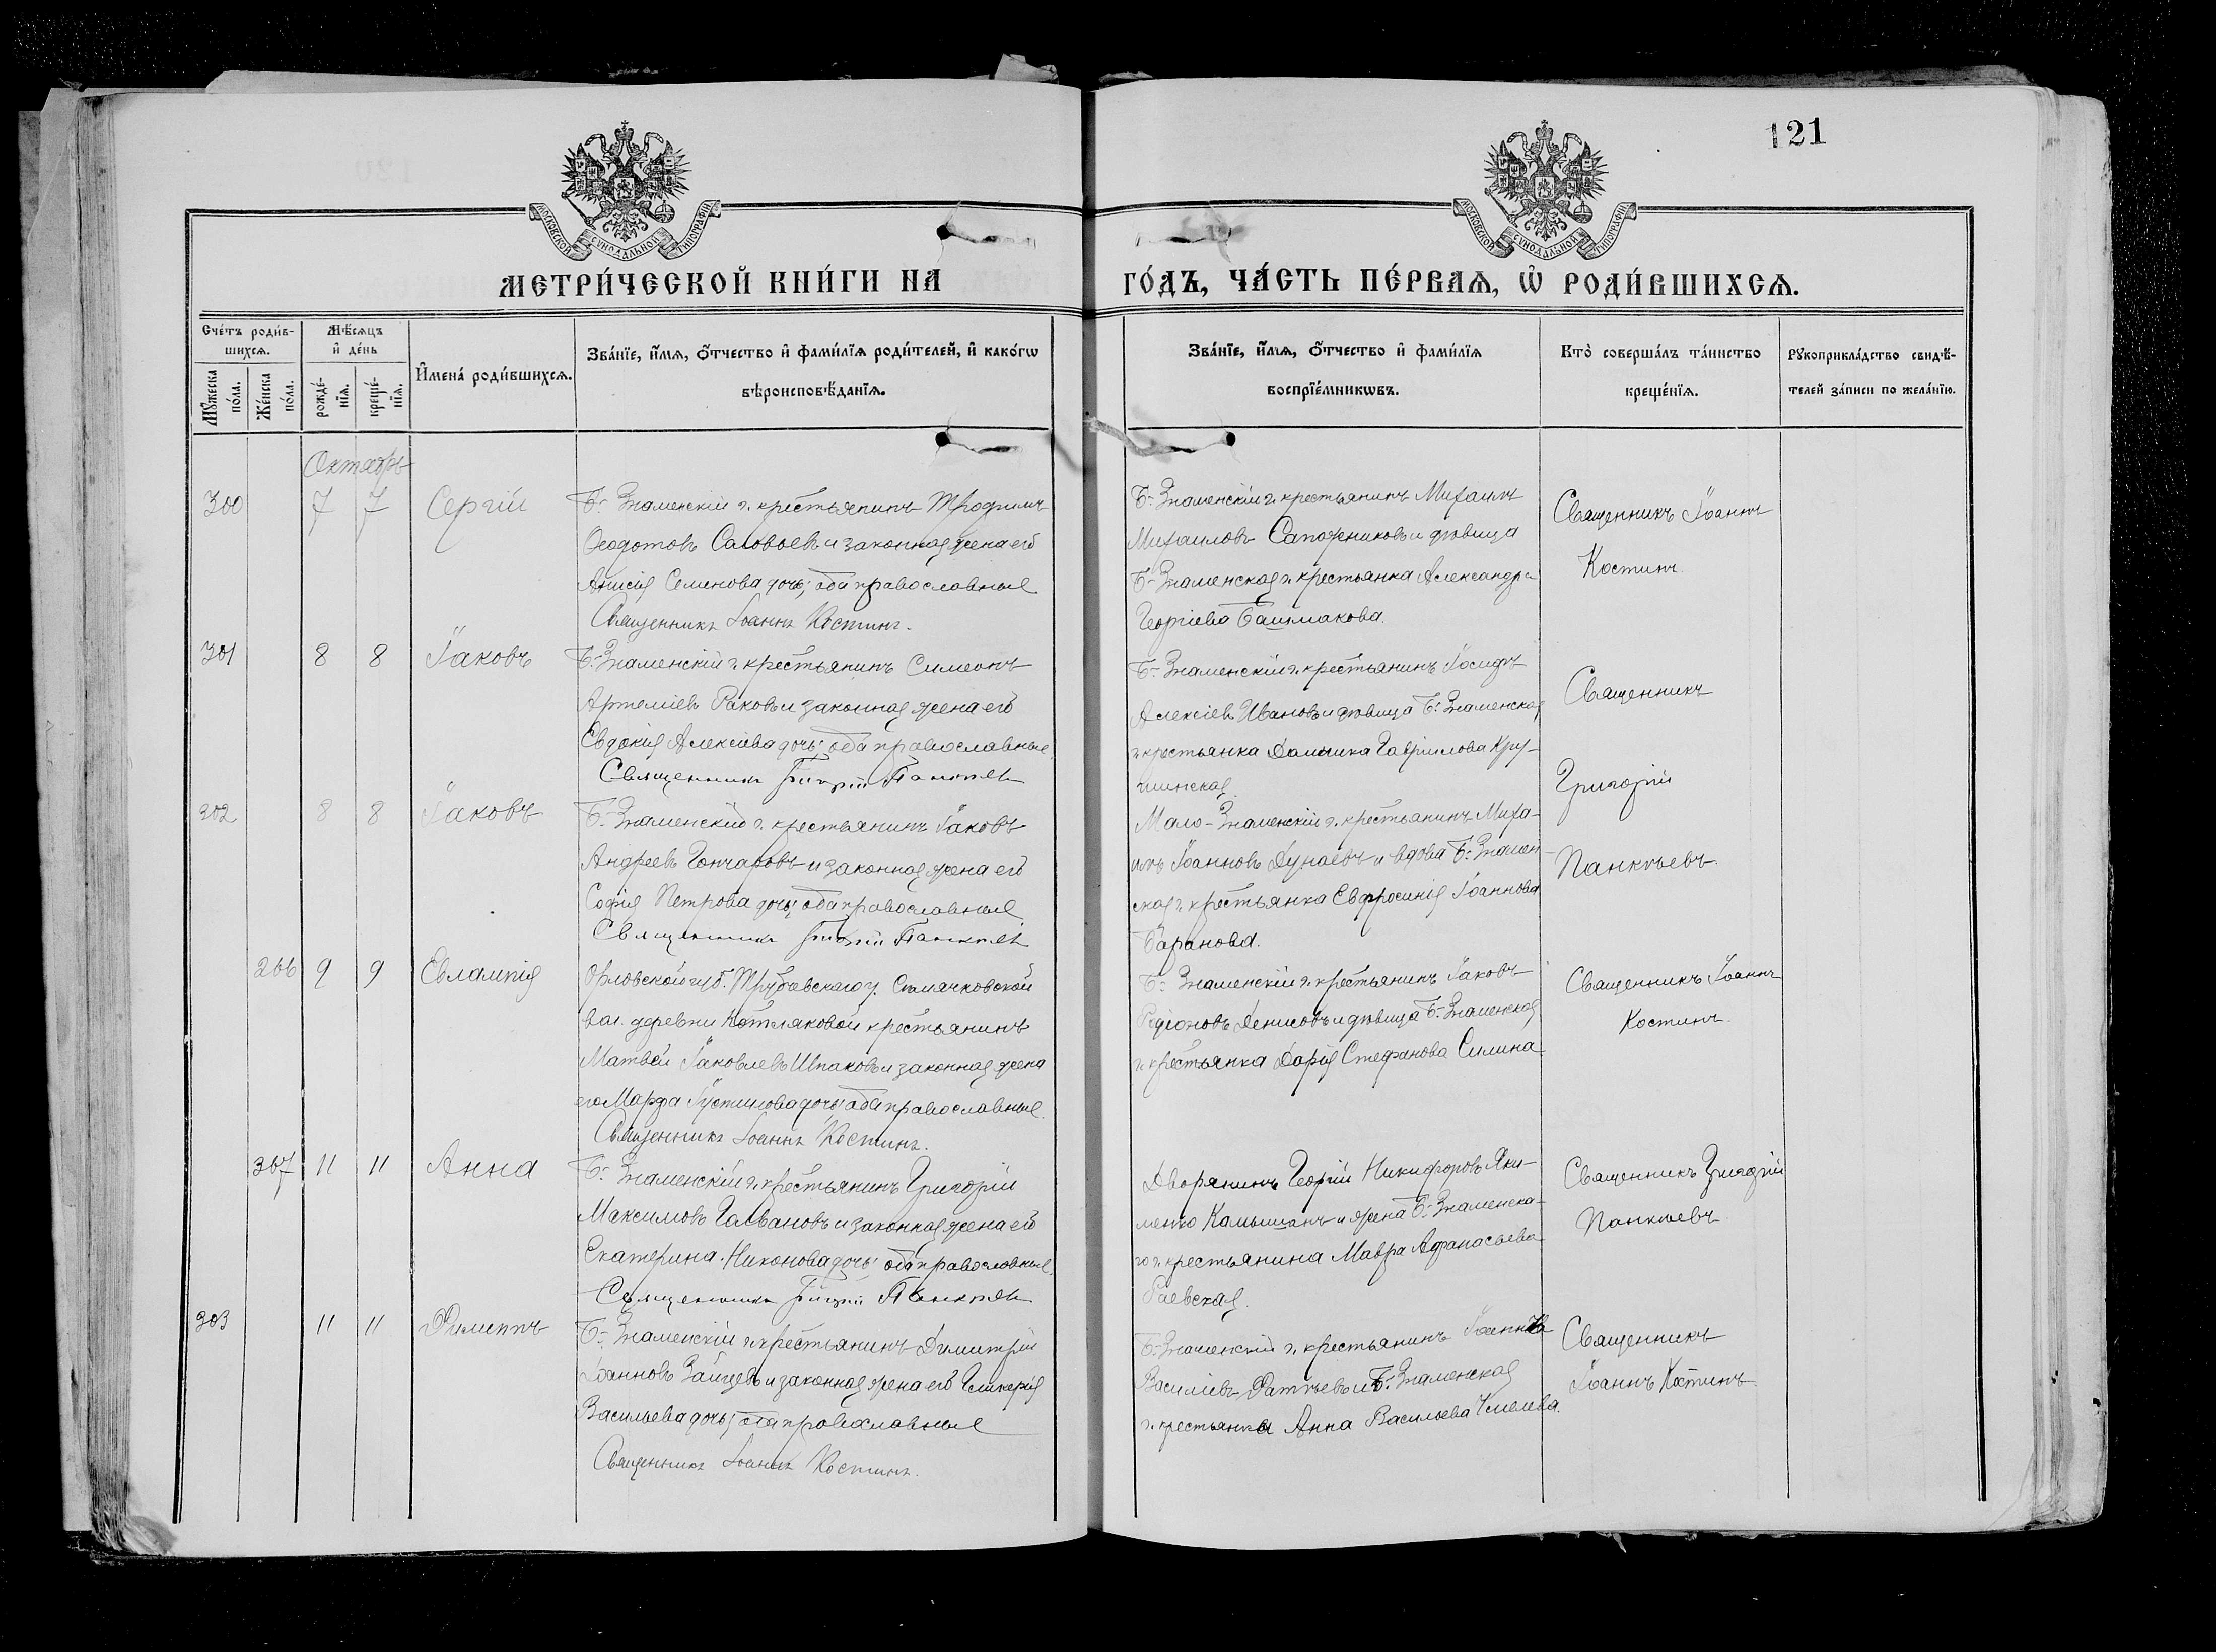 121
МОСКОВСКОЙ СѴНОДАЛЬНОЙ ТИПОГРАФІИ
МОСКОВСКОЙ СѴНОДАЛЬНОЙ ТИПОГРАФІИ
МЕТРИ́ЧЕСКОЙ КНИ́ГИ НА ГО́ДЪ, ЧА́СТЬ ПЕ́РВАѦ, Ѿ РОДИ́ВШИХСѦ.
Сче́тъ роди́в-
шихсѧ.
Мꙋ́жеска по́ла.
Же́нска по́ла.
Мѣ́сѧцъ
и҆ де́нь
рожде́-
нїѧ.
креще́-
нїѧ.
И҆мена̀ роди́вшихсѧ.
Зва́нїе, и҆́мѧ, ѻ҆́тчество и҆ фами́лїѧ роди́телей, и҆ како́гѡ
вѣроисповѣ́данїѧ.
Зва́нїе, и҆́мѧ, ѻ҆́тчество и҆ фами́лїѧ
воспрїе́мникѡвъ.
Кто̀ соверша́лъ та́инство
креще́нїѧ.
Рꙋкоприкла́дство свидѣ́-
телей за́писи по жела́нїю.
Октябрь
300 7 7 Сергій
Б.-Знаменскій г. крестьянинъ Трофимъ
Ѳеодотовъ Соловьевъ и законная жена его
Анисія Семенова дочь; оба православные
Священникъ Іоаннъ Костинъ.
Б.-Знаменскій г. крестьянинъ Михаилъ
Михаиловъ Сапожниковъ и дѣвица
Б.-Знаменская г. крестьянка Александра
Георгіева Башмакова.
Священникъ Іоаннъ
Костинъ
301 8 8 Іаковъ
Б.-Знаменскій г. крестьянинъ Симеонъ
Артеміевъ Раковъ и законная жена его
Евдокія Алексіева дочь; оба православные
Священникъ Григорій Панкѣев
Б.-Знаменскій г. крестьянинъ Іосифъ
Алексіевъ Ивановъ и дѣвица Б.-Знаменская
г. крестьянка Домника Гавріилова Кру-
шинская.
Священникъ
Григорій
Панкѣевъ
302 8 8 Іаковъ
Б.-Знаменскій г. крестьянинъ Іаковъ
Андреевъ Гончаровъ и законная жена его
Софія Петрова дочь; оба православные
Священникъ Григорій Панкѣев
Мало-Знаменскій г. крестьянинъ Миха-
илъ Іоанновъ Дунаевъ и вдова Б.-Знамен-
ская г. крестьянка Евфросинія Іоаннова
Баранова.
266 9 9 Евлампія
Орловской губ. Трубчевскаго у.
вол. деревни Котляковой крестьянинъ
Матвей Іаковлевъ Шпаковъ и законная жена
его Марфа Іустинова дочь; оба православные.
Священникъ Іоаннъ Костинъ.
Б.-Знаменскій г. крестьянинъ Іаковъ
Родіоновъ Денисовъ и дѣвица Б.-Знаменская
г. крестьянка Дарія Стефанова Силина
Священникъ Іоаннъ
Костинъ
267 11 11 Анна
Б.-Знаменскій г. крестьянинъ Григорій
Максимовъ Галвановъ и законная жена его
Екатерина Никонова дочь; оба православные.
Священникъ Григорій Панкѣев
Дворянинъ Георгій Никифоровъ Яки-
менко Камышанъ и жена Б.-Знаменска-
го г. крестьянина Мавра Афанасьева
Раевская.
Священникъ Григорій
Панкѣевъ
303 11 11 Филиппъ
Б.-Знаменскій г. крестьянинъ Димитрій
Іоанновъ Зайцевъ и законная жена его Гликерія
Васильева дочь; оба православные
Священникъ Іоаннъ Костинъ.
Б.-Знаменскій г. крестьянинъ Іоаннъ
Василіевъ Фатѣевъ и Б.-Знаменская
г. крестьянка Анна Васильева
Священникъ
Іоаннъ Костинъ